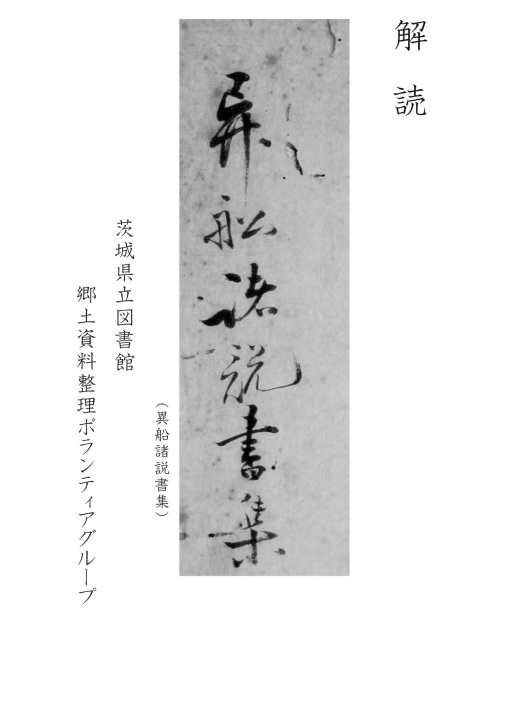 解読
異舩諸説書集
(異船諸説書集)
茨城県立図書館
郷土資料整理ボランティアグループ